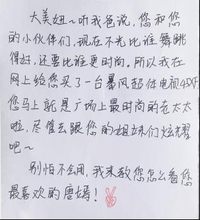 大美妞~听我爸说，您和您
的小伙伴们，现在不光比谁舞跳
得好，还要比谁更时尚。所以我在
网上给您买了一台暴风超体电视45XF,
您马上就是广场上最时尚的老太太
啦，尽管去跟您的姐妹们炫耀
吧~
别怕不会用，我来教您怎么看您
最喜欢的唐嫣！